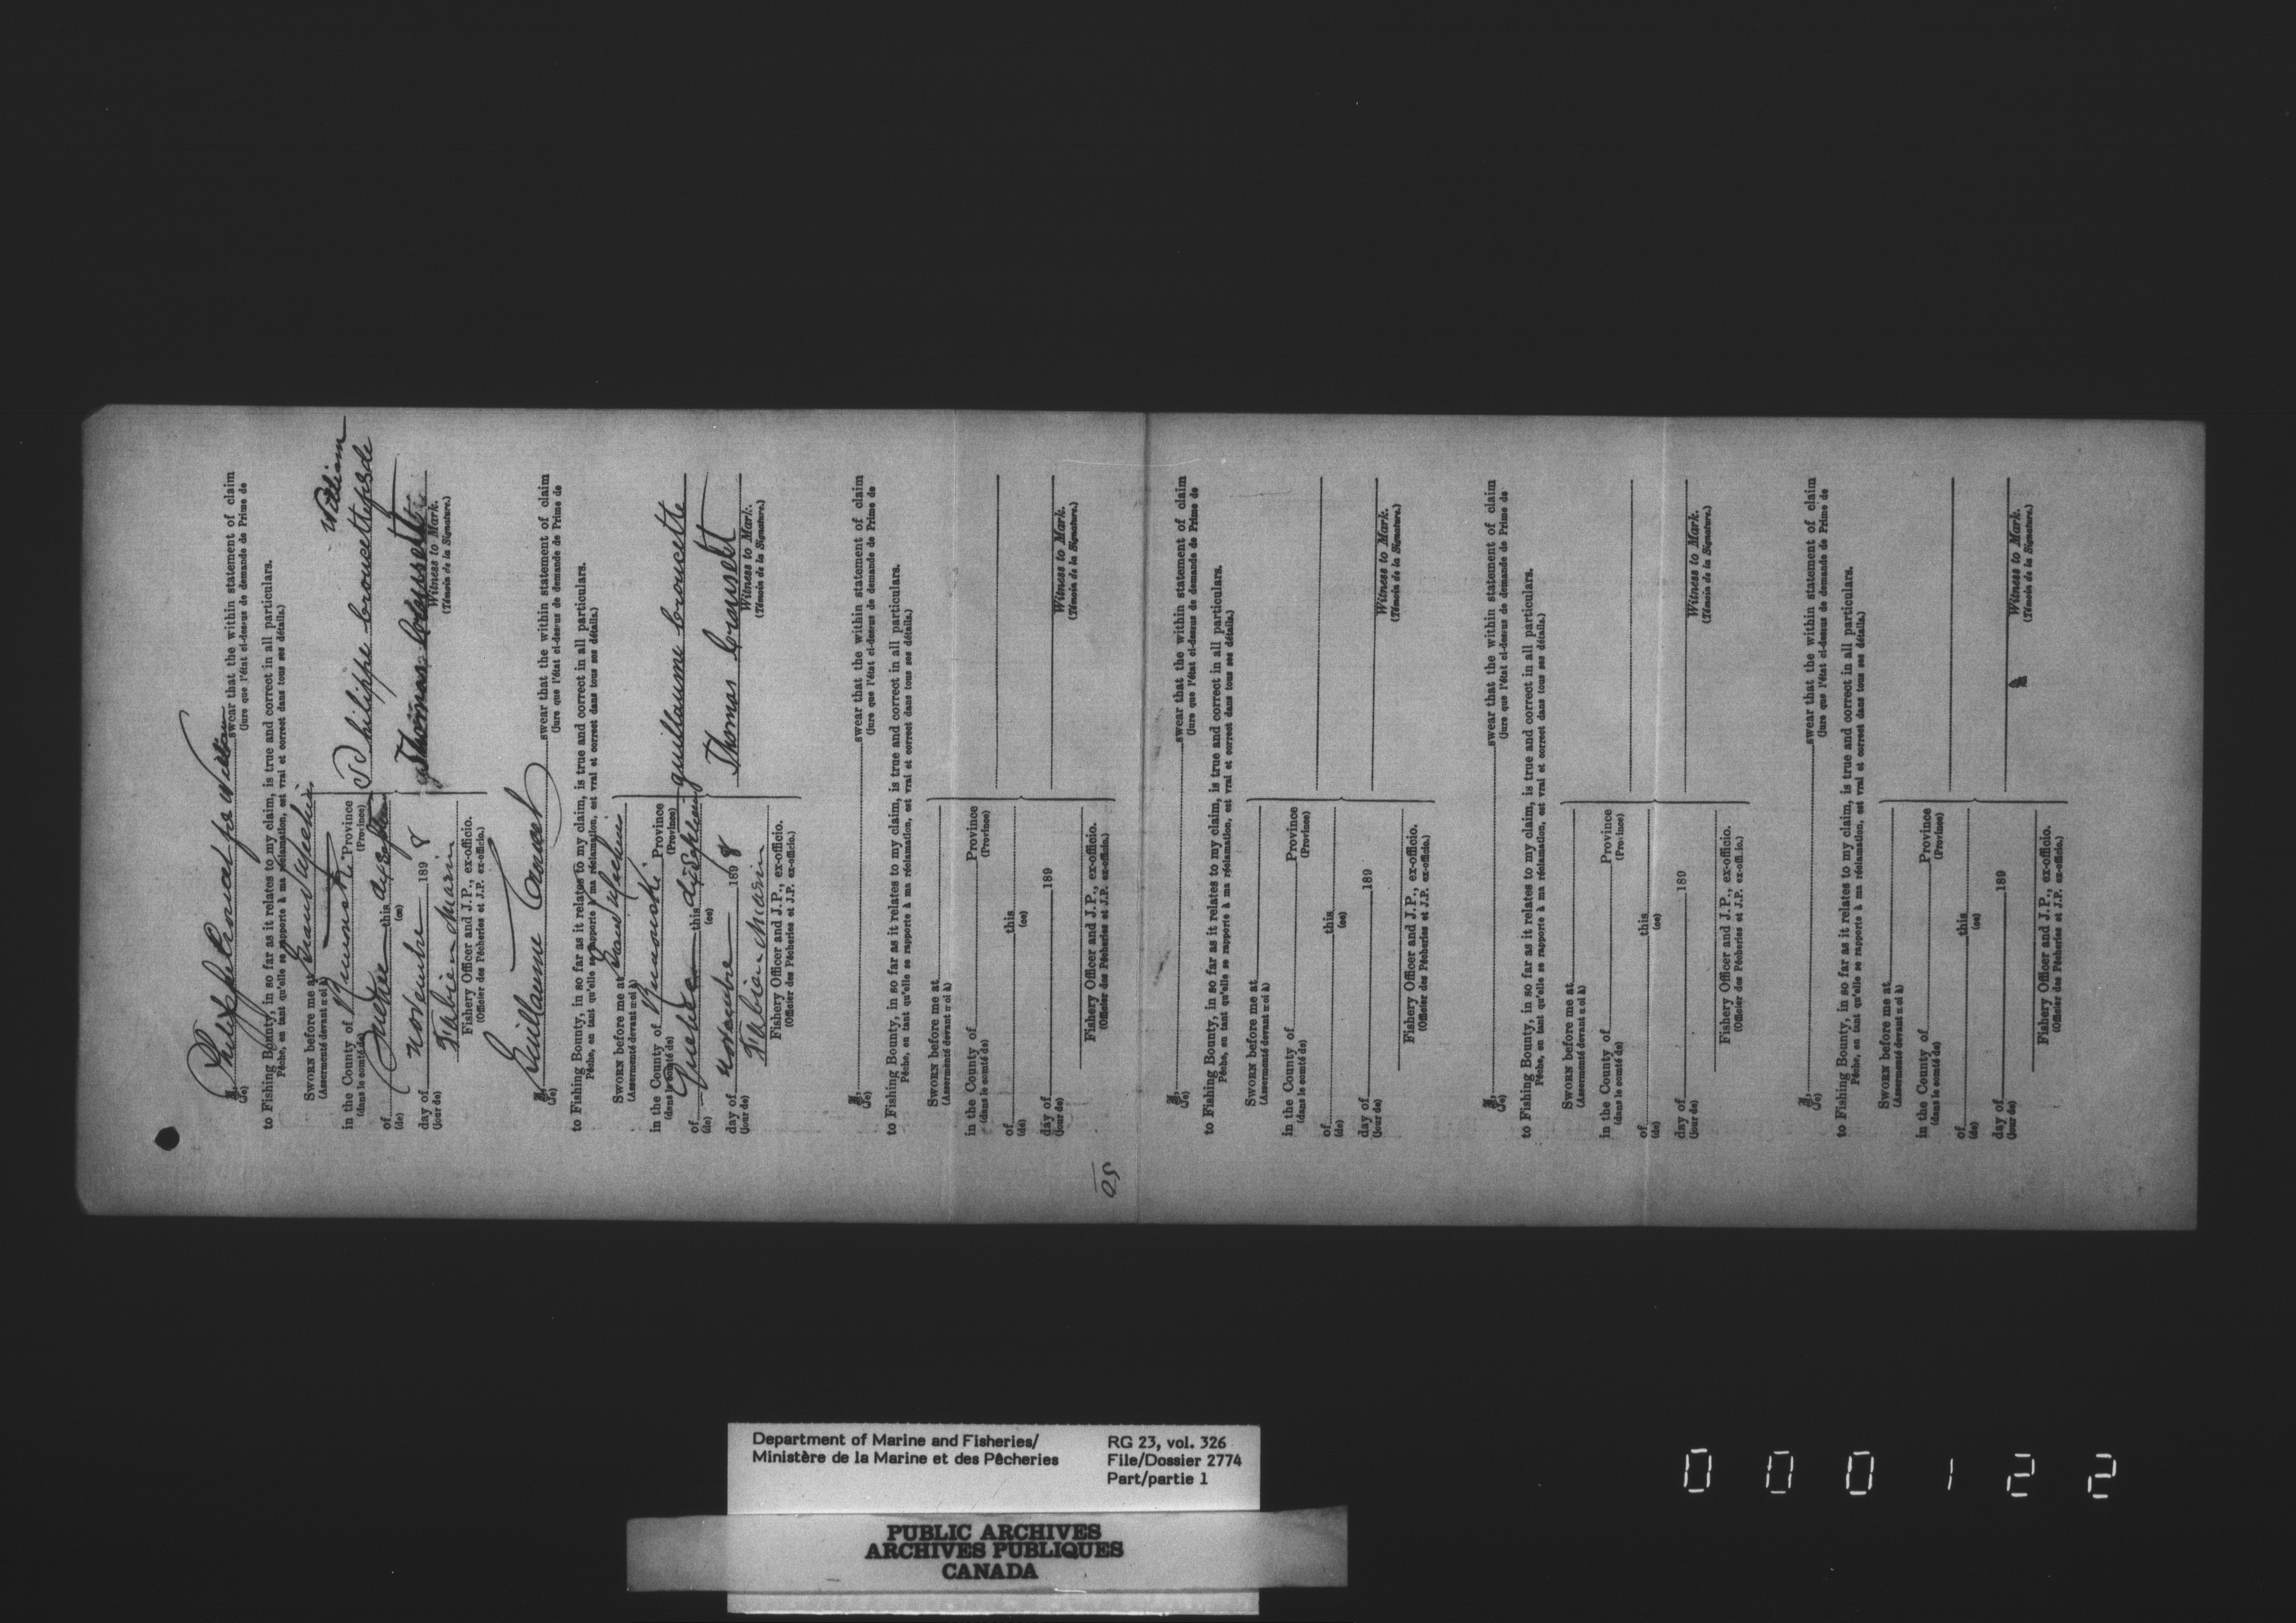 I, Philippe Cronat pr William swear that the within statement of claim
(Je) (jure que l'état ci-dessus de demande de Prime de
to Fishing Bounty, in so far as it relates to my claim, is true and correct in all particulars.
Pêche, en tant qu'elle se rapporte à ma réclamation, est vrai et correct dans tous ses détails.)
SWORN before me at Grand Méchin
(Assermenté devant moi à)
William
in the County of Rimouski Province
(dans le comté de) (Province)
Philippe Croucette pr de
of Québec this
(de) (ce)
day of novembre 1898
(jour de)
Thomas
Witness to Mark.
(Témoin de la Signature.)
Fabien Marin
Fishery Officer and J.P., ex-officio.
(Officier des Pêcheries et J.P. ex-officio.)
I, Guillaume swear that the within statement of claim
(Je) (jure que l'état ci-dessus de demande de Prime de
to Fishing Bounty, in so far as it relates to my claim, is true and correct in all particulars.
Pêche, en tant qu'elle se rapporte à ma réclamation, est vrai et correct dans tous ses détails.)
SWORN before me at Grand Méchin
(Assermenté devant moi à)
in the County of Rimouski Province
(dans le comté de) (Province)
guillaume Croucette
of Québec this
(de) (ce)
day of novembre 1898
(jour de)
Thomas Crousset
Witness to Mark.
(Témoin de la Signature.)
Fabien Marin
Fishery Officer and J.P., ex-officio.
(Officier des Pêcheries et J.P. ex-officio.)
I, swear that the within statement of claim
(Je) (jure que l'état ci-dessus de demande de Prime de
to Fishing Bounty, in so far as it relates to my claim, is true and correct in all particulars.
Pêche, en tant qu'elle se rapporte à ma réclamation, est vrai et correct dans tous ses détails.)
SWORN before me at
(Assermenté devant moi à)
in the County of Province
(dans le comté de) (Province)
of this
(de) (ce)
day of 189
(jour de)
Witness to Mark.
(Témoin de la Signature.)
Fishery Officer and J.P., ex-officio.
(Officier des Pêcheries et J.P. ex-officio.)
50
I, swear that the within statement of claim
(Je) (jure que l'état ci-dessus de demande de Prime de
to Fishing Bounty, in so far as it relates to my claim, is true and correct in all particulars.
Pêche, en tant qu'elle se rapporte à ma réclamation, est vrai et correct dans tous ses détails.)
SWORN before me at
(Assermenté devant moi à)
in the County of Province
(dans le comté de) (Province)
of this
(de) (ce)
day of 189
(jour de)
Witness to Mark.
(Témoin de la Signature.)
Fishery Officer and J.P., ex-officio.
(Officier des Pêcheries et J.P. ex-officio.)
I, swear that the within statement of claim
(Je) (jure que l'état ci-dessus de demande de Prime de
to Fishing Bounty, in so far as it relates to my claim, is true and correct in all particulars.
Pêche, en tant qu'elle se rapporte à ma réclamation, est vrai et correct dans tous ses détails.)
SWORN before me at
(Assermenté devant moi à)
in the County of Province
(dans le comté de) (Province)
of this
(de) (ce)
day of 189
(jour de)
Witness to Mark.
(Témoin de la Signature.)
Fishery Officer and J.P., ex-officio.
(Officier des Pêcheries et J.P. ex-officio.)
I, swear that the within statement of claim
(Je) (jure que l'état ci-dessus de demande de Prime de
to Fishing Bounty, in so far as it relates to my claim, is true and correct in all particulars.
Pêche, en tant qu'elle se rapporte à ma réclamation, est vrai et correct dans tous ses détails.)
SWORN before me at
(Assermenté devant moi à)
in the County of Province
(dans le comté de) (Province)
of this
(de) (ce)
day of 189
(jour de)
Witness to Mark.
(Témoin de la Signature.)
Fishery Officer and J.P., ex-officio.
(Officier des Pêcheries et J.P. ex-officio.)
Department of Marine and Fisheries/ RG 23, vol. 326
Ministère de la Marine et des Pêcheries File/Dossier 2774
Part/partie 1
PUBLIC ARCHIVES
ARCHIVES PUBLIQUES
CANADA
000122